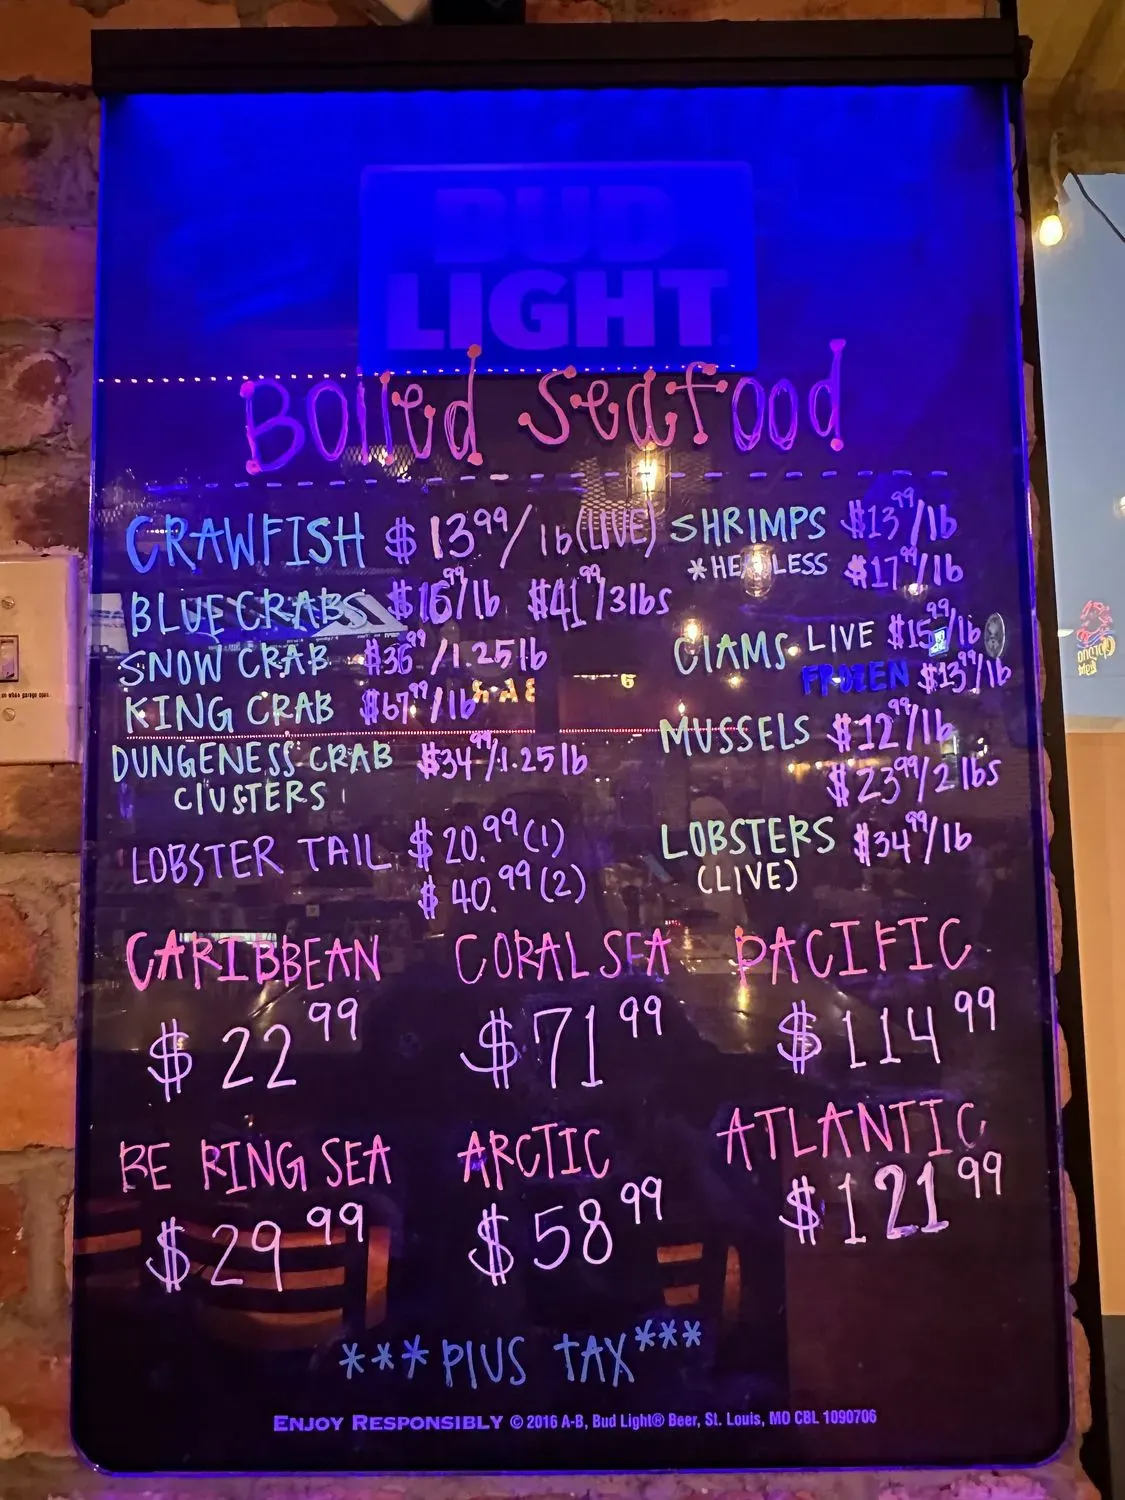 BUD
LIGHT
Boiled Seafood
CRAWFISH $13.99/lb (LIVE)
BLUE CRABS $16.99/lb $41.99/3lbs
SNOW CRAB $36.99/1.25lb
KING CRAB $67.99/lb
DUNGENESS CRAB $34.99/1.25lb
ClUSTERS
LOBSTER TAIL $20.99 (1)
$40.99 (2)
SHRIMPS $13.99/lb
*HEADLESS $17.99/lb
ClAMS LIVE $15.99/lb
FROZEN $13.99/lb
MUSSELS $12.99/lb
$23.99/2lbs
LOBSTERS $34.99/lb
(LIVE)
CARIBBEAN CORAL SEA PACIFIC
$22.99 $71.99 $114.99
BE RING SEA ARCTIC ATLANTIC
$29.99 $58.99 $121.99
***PlUS TAX***
ENJOY RESPONSIBLY © 2016 A-B, Bud Light® Beer, St. Louis, MO CBL 1090706
Corona